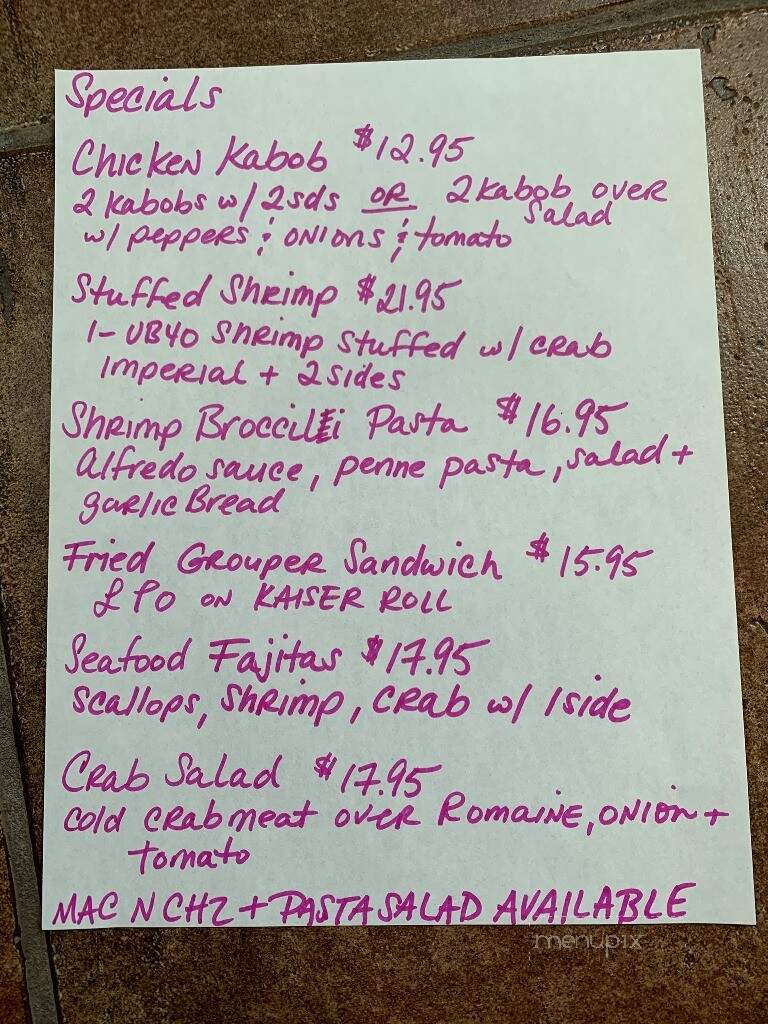 Specials
Chicken Kabob $12.95
2 kabobs w/ 2 sds OR 2 kabob over
Salad
w/ peppers & onions & tomato
Stuffed Shrimp $21.95
1- UB40 Shrimp Stuffed w/ crab
imperial + 2 sides
Shrimp Broccili Pasta $16.95
alfredo sauce, penne pasta, salad +
garlic Bread
Fried Grouper Sandwich $15.95
on KAISER ROLL
Seafood Fajitas $17.95
scallops, shrimp, crab w/ 1 side
Crab Salad $17.95
cold crabmeat over Romaine, onion +
tomato
MAC N CHZ + PASTA SALAD AVAILABLE
menupix